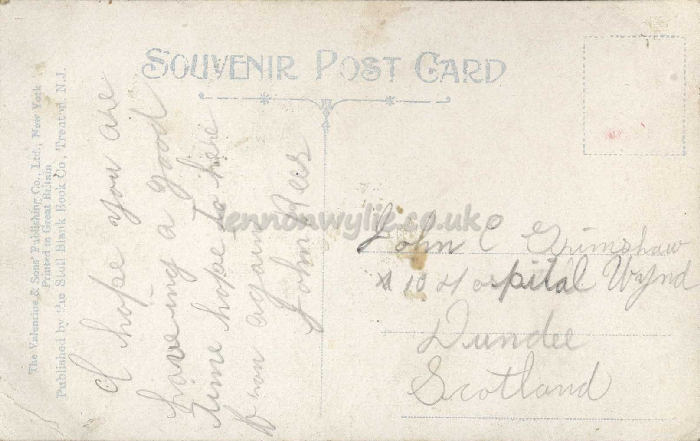 SOUVENIR POST CARD
The Valentine & Sons' Publishing Co., Ltd., New York
Printed in Great Britain
Published by the Stoll Blank Book Co, Trenton, N.J.
I hope you are
haveing a good
time hope to here
from again
John Rees
lennonwylie.co.uk
John C Grimshaw
10 Hospital Wynd
Dundee
Scotland